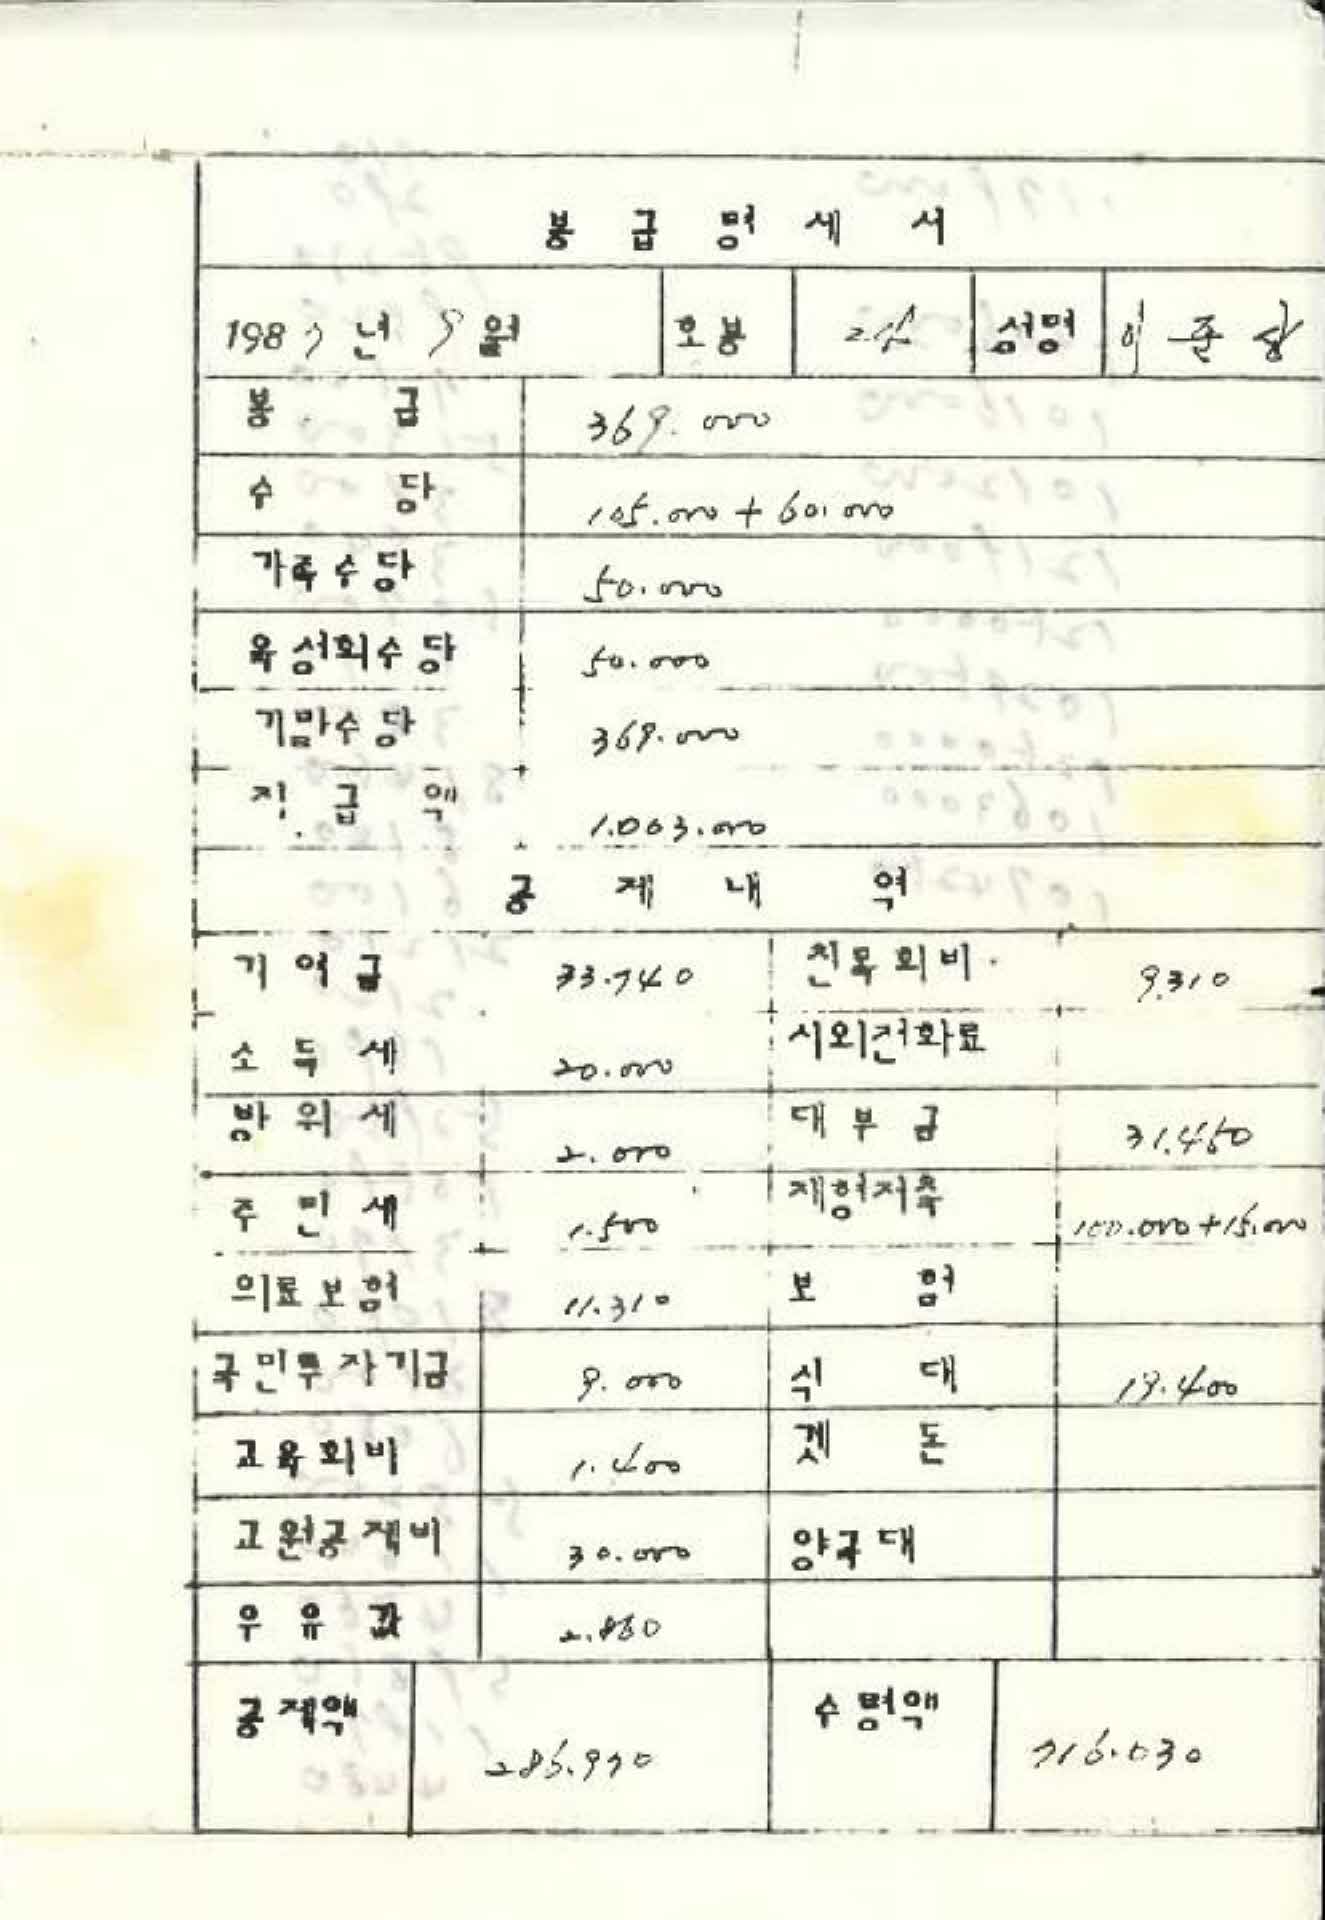 봉 급 명 세 서
1987년 9월 호봉 24 성명 이준상
봉 급 369.000
수 당 105.000 + 60.000
가족수당 50.000
육성회수당 50.000
기말수당 369.000
지 급 액 1.003.000
공 제 내 역
기여금 33.740 친목회비 9.310
소득세 20.000 시외전화료
방위세 2.000 대부금 31.450
주민세 1.500 재형저축 100.000+15.000
의료보험 11.310 보 험
국민투자기금 9.000 식 대 19.400
교육회비 1.400 곗 돈
교원공제비 30.000 양곡대
우유값 2.860
공제액 286.970 수령액 716.030